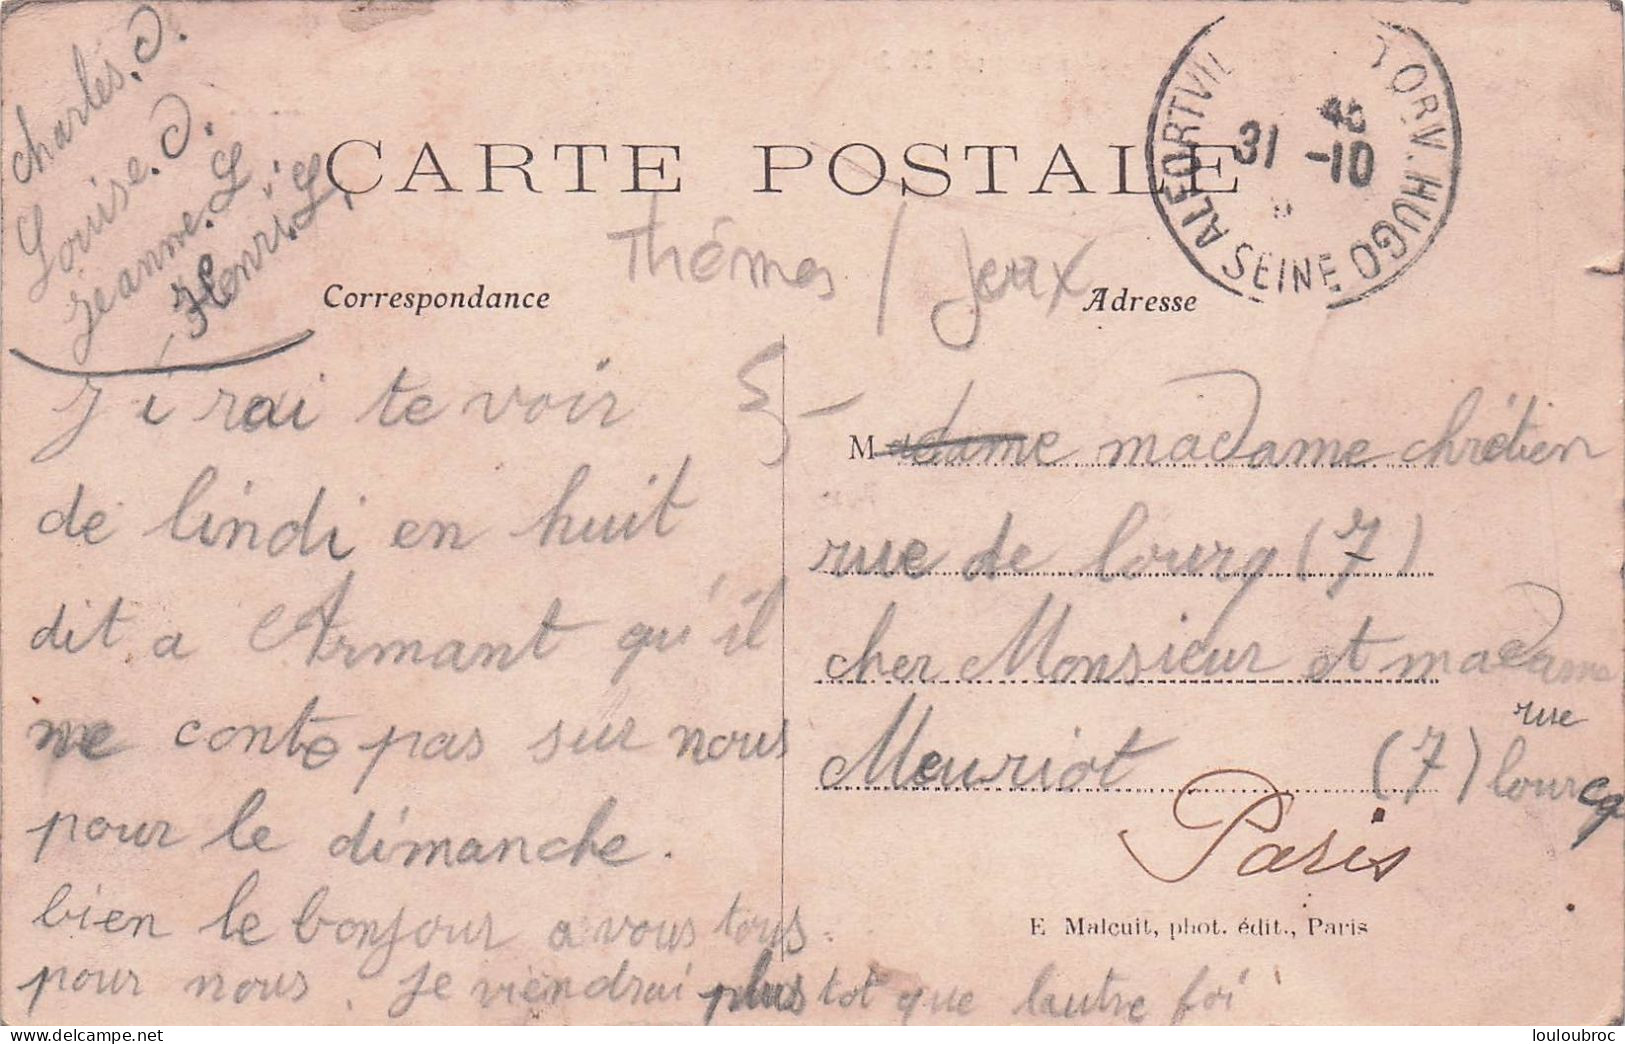 Charles. D.
Louise. D.
Jeanne. L.
Henri. L.
CARTE POSTALE
ALFORTVIL
31 -10
SEINE
HUGO
Thémes / Jeux
Correspondance
Adresse
J'irai te voir
de lindi en huit
dit a Armant qu'il
me conte pas sur nous
pour le dimanche.
bien le bonjour a vous tous
pour nous. Je viendrai plus tot que lautre foi
5-
Madame madame chrétien
rue de lourq (7)
cher Monsieur et madame
Meuriot (7) rue lourcq
Paris
E Malcuit, phot. édit., Paris
louloubroc